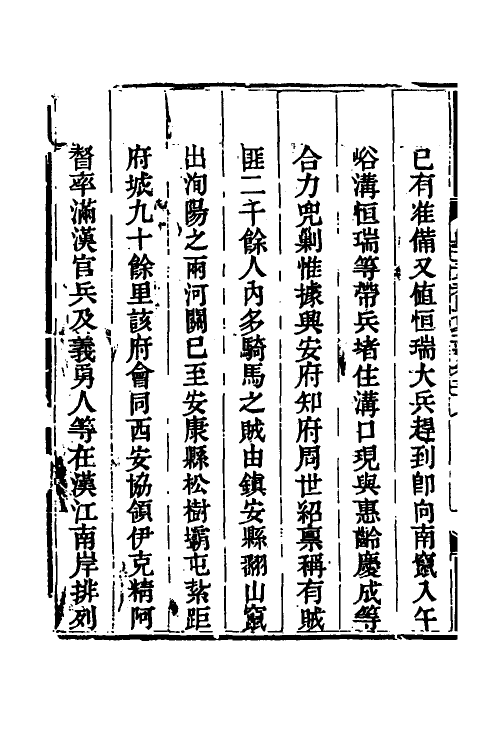 已有准備又值恒瑞大兵趕到卽向南竄入午
峪溝恒瑞等帶兵堵住溝口現與惠齡慶成等
合力兜剿惟據興安府知府周世紹禀稱有賊
匪二千餘人內多騎馬之賊由鎮安縣翻山竄
出洵陽之兩河關已至安康縣松樹壩屯紮距
府城九十餘里該府會同西安協領伊克精阿
督率滿漢官兵及義勇人等在漢江南岸排列